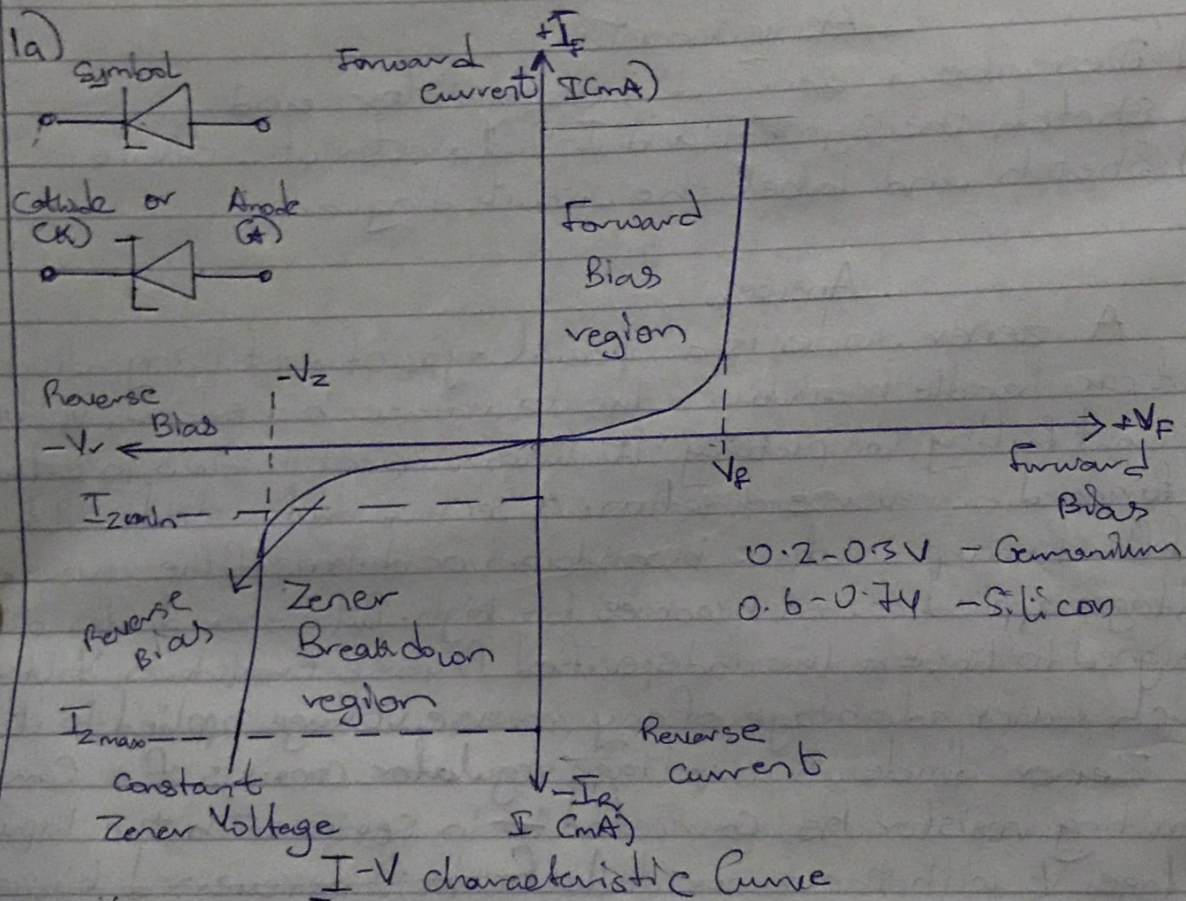 1a)
Symbol
Cathode or Anode
(K) (A)
+IF
Forward
Current I(mA)
Forward
Bias
region
-VZ
Reverse
Bias
-Vr
+VF
Forward
Bias
Vf
IZmin
0.2-0.3V - Germanium
0.6-0.7V - Silicon
Reverse
Bias
Zener
Breakdown
region
IZmax
Constant
Zener Voltage
Reverse
current
-IR
I (mA)
I-V characteristic Curve